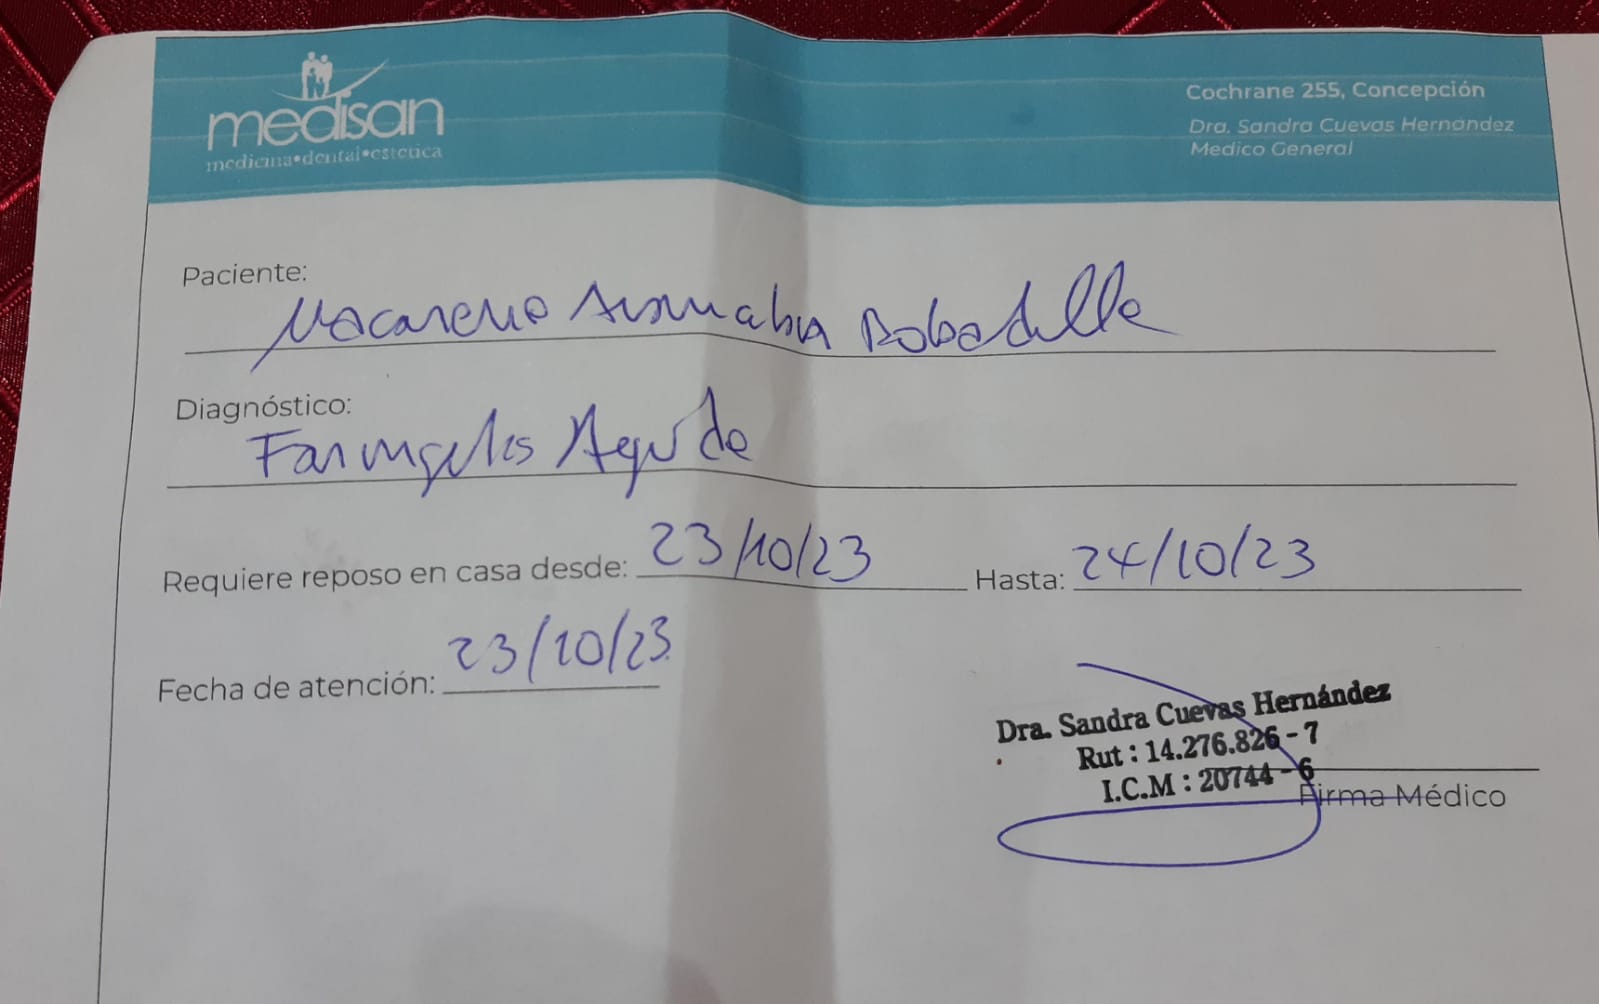 medisan
medicina•dental•estetica
Cochrane 255, Concepción
Dra. Sandra Cuevas Hernández
Medico General
Paciente:
Macarena Bobadilla
Diagnóstico:
Faringitis Aguda
Requiere reposo en casa desde: 23/10/23 Hasta: 24/10/23
Fecha de atención: 23/10/23
Dra. Sandra Cuevas Hernández
Rut : 14.276.826 - 7
I.C.M : 20744 - 6
Firma Médico